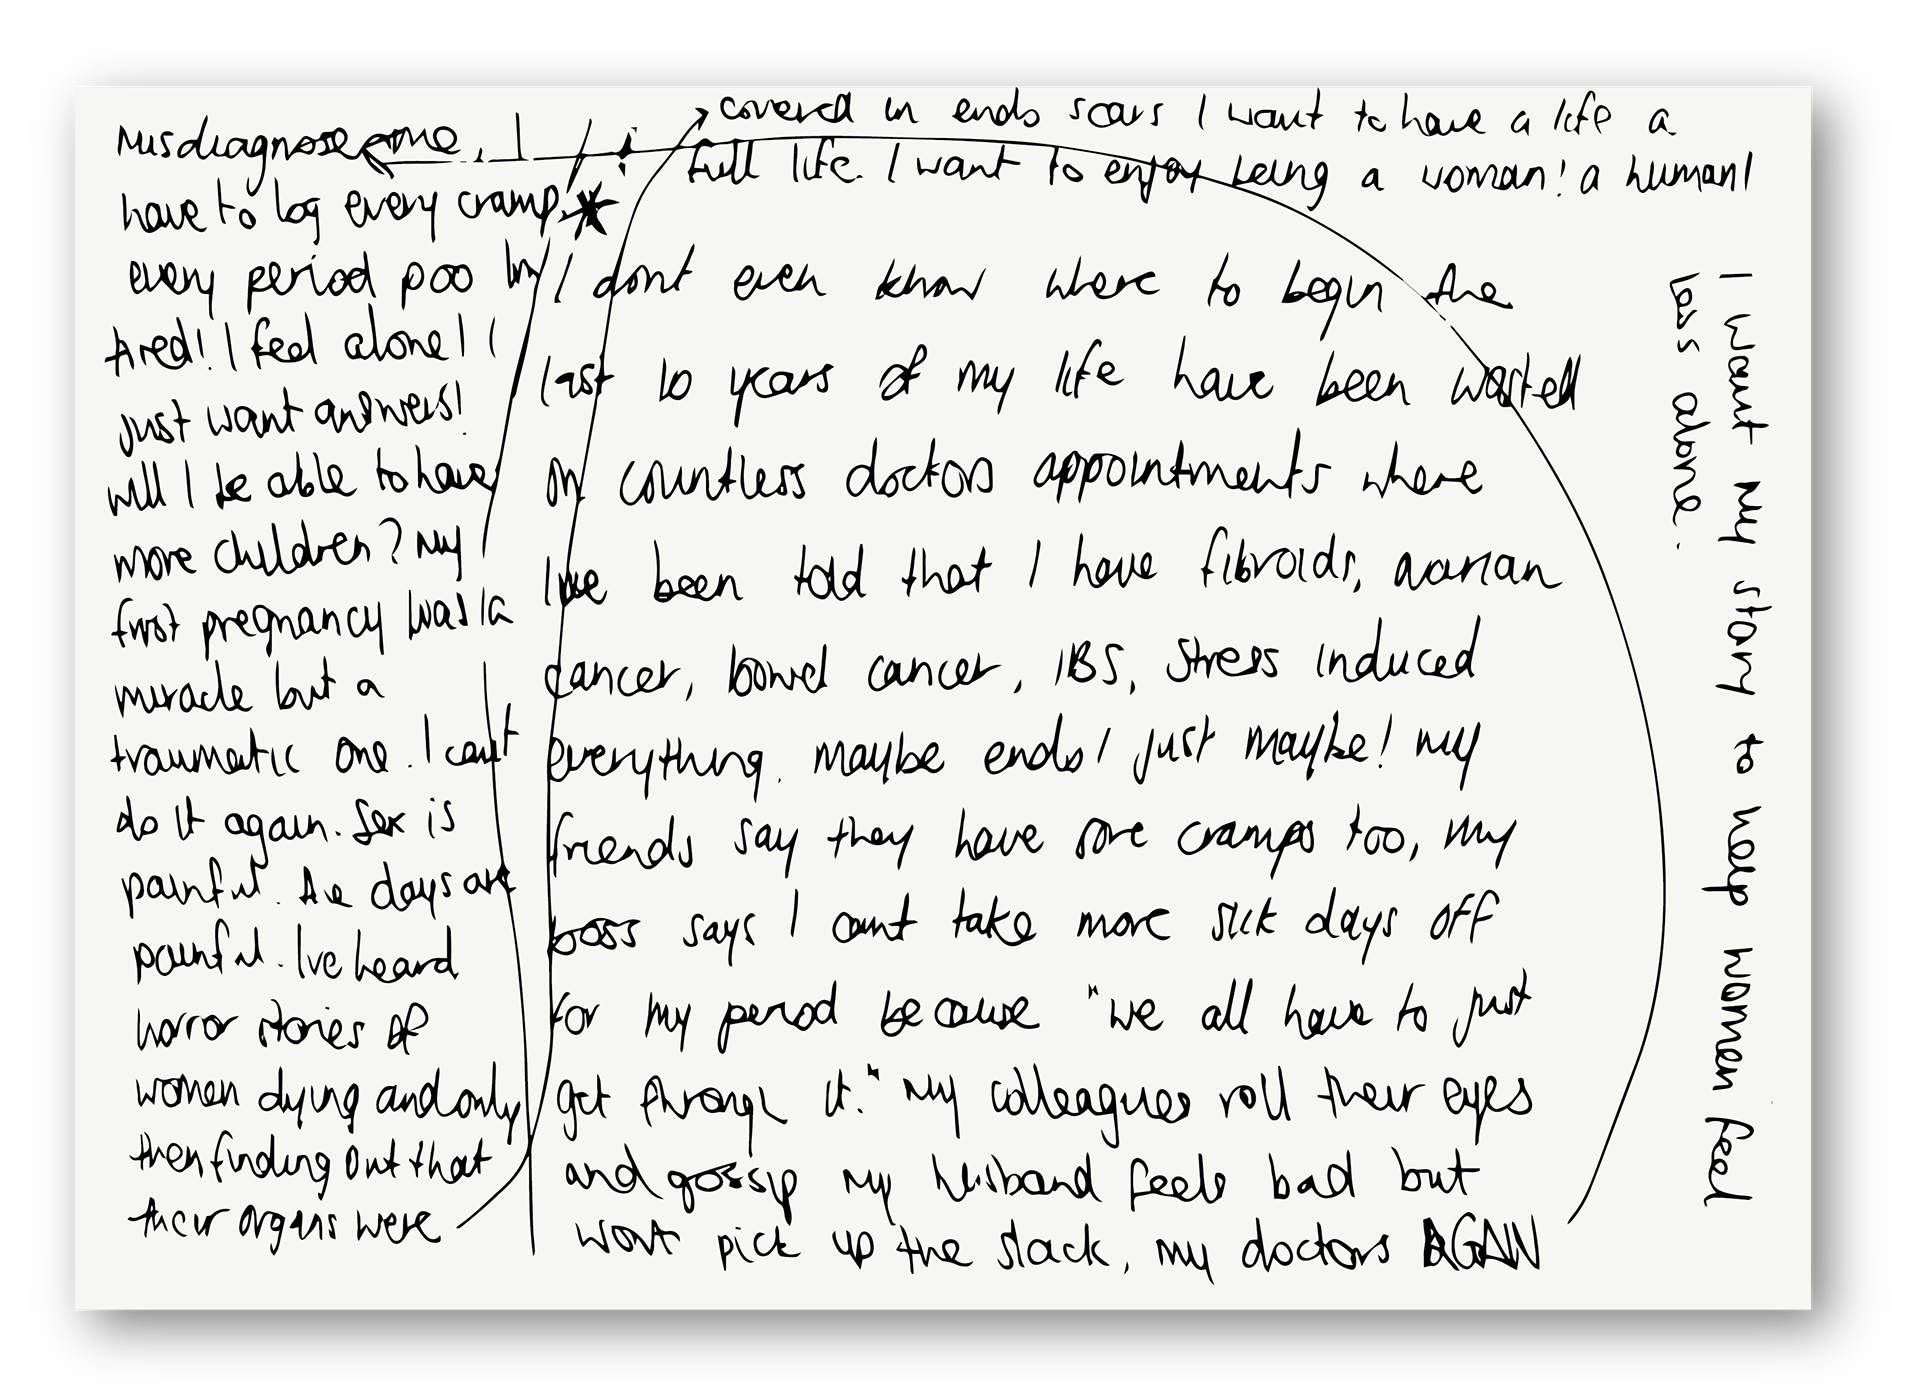 I dont even know where to begin the
last 10 years of my life have been wasted
on countless doctors appointments where
Ive been told that I have fibroids, ovarian
cancer, bowel cancer, IBS, stress induced
everything. maybe endo! just maybe! my
friends say they have sore cramps too, my
boss says I cant take more sick days off
for my period because "we all have to just
get through it." my colleagues roll their eyes
and gossip my husband feels bad but
wont pick up the slack, my doctors AGAIN
misdiagnose me. I
have to log every cramp
every period poo Im
tired! I feel alone! I
just want answers!
will I be able to have
more children? My
first pregnancy was a
miracle but a
traumatic one. I cant
do it again. Sex is
painful. the days are
painful. Ive heard
horror stories of
women dying and only
then finding out that
their organs were
covered in endo scars I want to have a life a
full life. I want to enjoy being a woman! a human!
I want my story to help women feel
less alone.